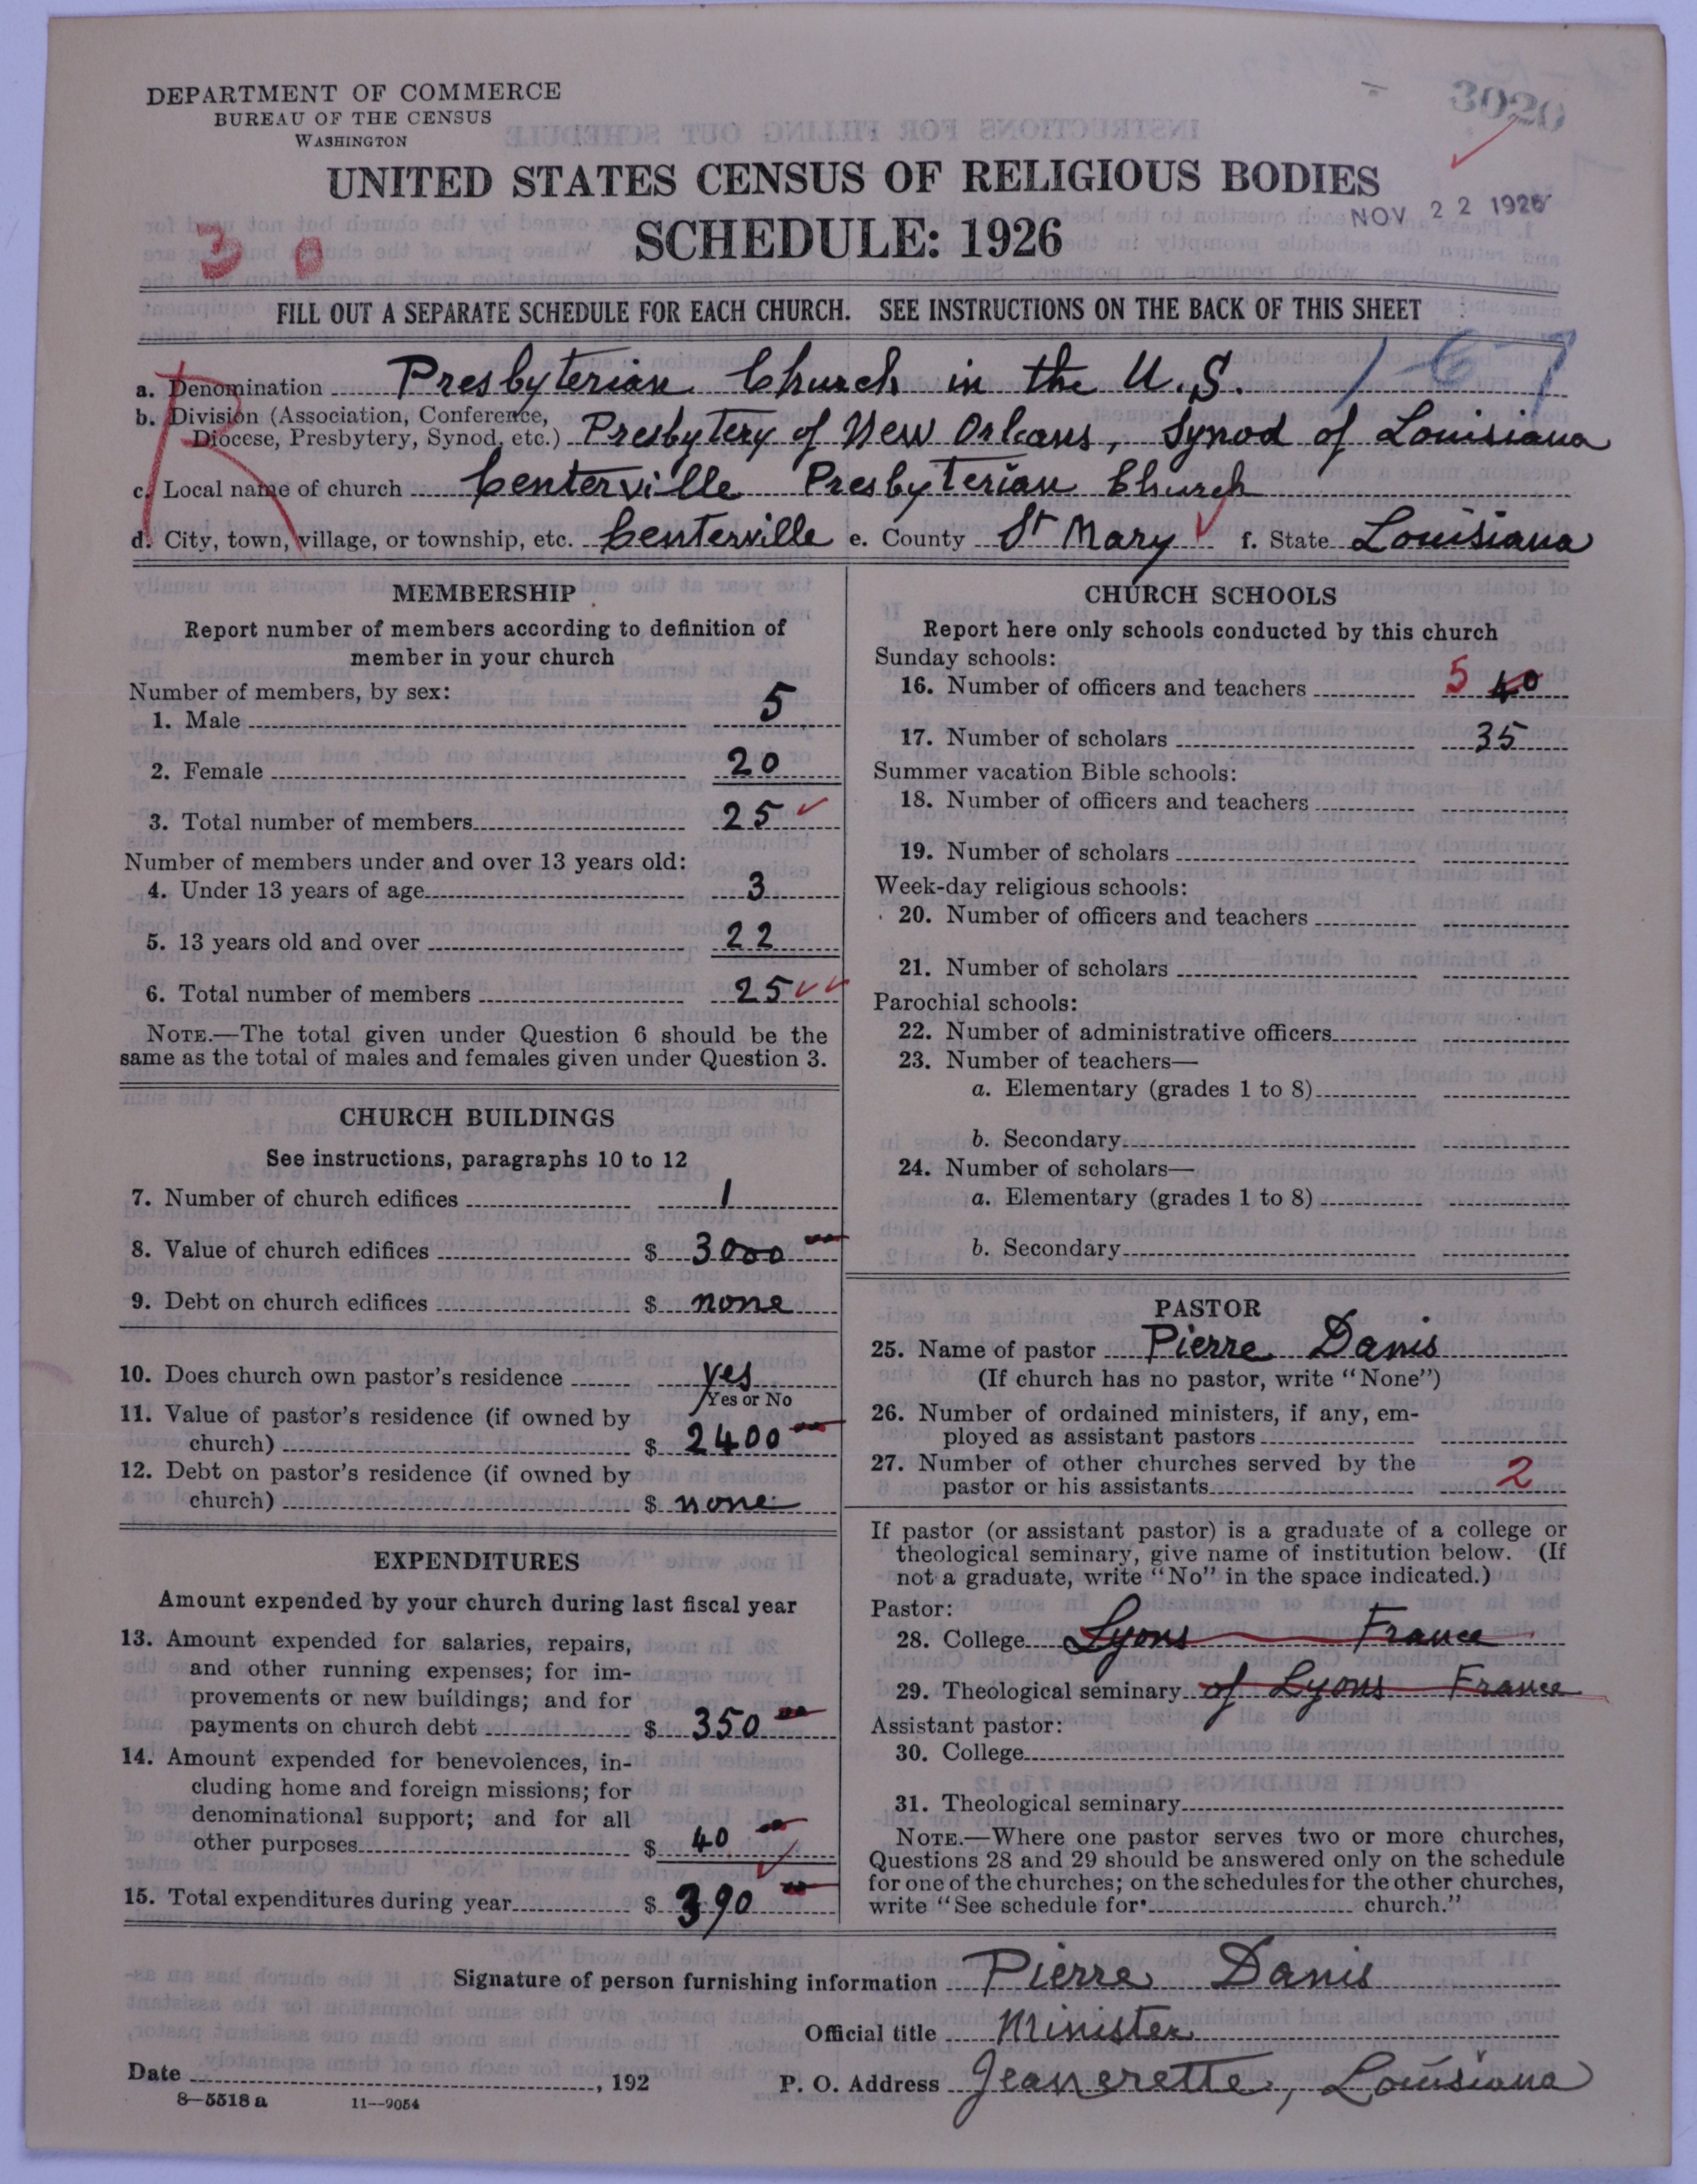 DEPARTMENT OF COMMERCE
BUREAU OF THE CENSUS
WASHINGTON
3020
UNITED STATES CENSUS OF RELIGIOUS BODIES
NOV 22 1926
SCHEDULE: 1926
3 0
FILL OUT A SEPARATE SCHEDULE FOR EACH CHURCH. SEE INSTRUCTIONS ON THE BACK OF THIS SHEET
a. Denomination Presbyterian Church in the U.S.
b. Division (Association, Conference,
Diocese, Presbytery, Synod, etc.) Presbytery of New Orleans, Synod of Louisiana
c. Local name of church Centerville Presbyterian Church
d. City, town, village, or township, etc. Centerville e. County St Mary f. State Louisiana
MEMBERSHIP
Report number of members according to definition of
member in your church
Number of members, by sex:
1. Male 5
2. Female 20
3. Total number of members 25
Number of members under and over 13 years old:
4. Under 13 years of age 3
5. 13 years old and over 22
6. Total number of members 25
NOTE.—The total given under Question 6 should be the
same as the total of males and females given under Question 3.
CHURCH BUILDINGS
See instructions, paragraphs 10 to 12
7. Number of church edifices 1
8. Value of church edifices $ 3000
9. Debt on church edifices $ none
10. Does church own pastor's residence yes
Yes or No
11. Value of pastor's residence (if owned by
church) $ 2400
12. Debt on pastor's residence (if owned by
church) $ none
EXPENDITURES
Amount expended by your church during last fiscal year
13. Amount expended for salaries, repairs,
and other running expenses; for im-
provements or new buildings; and for
payments on church debt $ 350
14. Amount expended for benevolences, in-
cluding home and foreign missions; for
denominational support; and for all
other purposes $ 40
15. Total expenditures during year $ 390
CHURCH SCHOOLS
Report here only schools conducted by this church
Sunday schools:
16. Number of officers and teachers 5 40
17. Number of scholars 35
Summer vacation Bible schools:
18. Number of officers and teachers
19. Number of scholars
Week-day religious schools:
20. Number of officers and teachers
21. Number of scholars
Parochial schools:
22. Number of administrative officers
23. Number of teachers—
a. Elementary (grades 1 to 8)
b. Secondary
24. Number of scholars—
a. Elementary (grades 1 to 8)
b. Secondary
PASTOR
25. Name of pastor Pierre Danis
(If church has no pastor, write "None")
26. Number of ordained ministers, if any, em-
ployed as assistant pastors
27. Number of other churches served by the
pastor or his assistants 2
If pastor (or assistant pastor) is a graduate of a college or
theological seminary, give name of institution below. (If
not a graduate, write "No" in the space indicated.)
Pastor:
28. College Lyons France
29. Theological seminary of Lyons France
Assistant pastor:
30. College
31. Theological seminary
NOTE.—Where one pastor serves two or more churches,
Questions 28 and 29 should be answered only on the schedule
for one of the churches; on the schedules for the other churches,
write "See schedule for church."
Signature of person furnishing information Pierre Danis
Official title Minister
Date , 192 P. O. Address Jeanerette, Louisiana
8—5518 a 11—9054